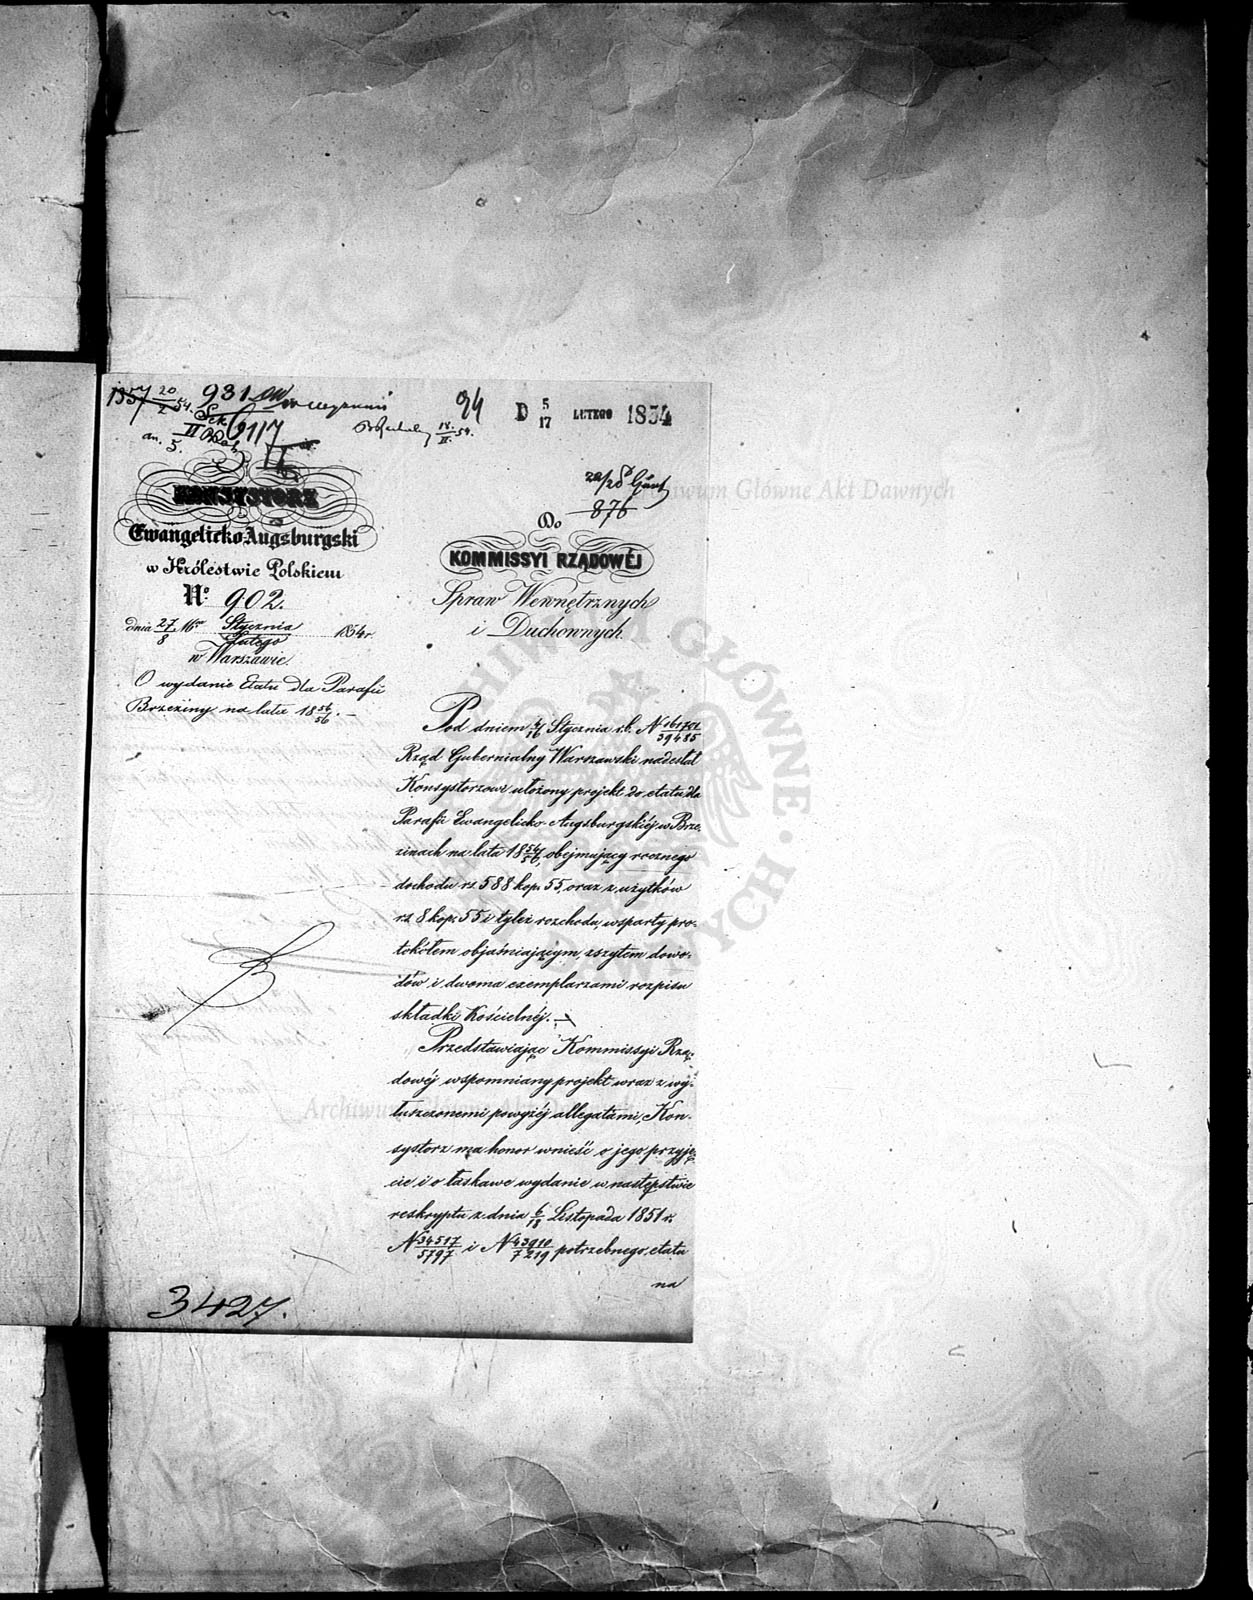 1357 20/2 54. 931
94
D 5/17 LUTEGO 1854
6117
II
18/II 54.
an. 5.
KONSYSTORZ
Ewangelicko Augsburgski
w Królestwie Polskiem
No. 902.
dnia 27/8 Stycznia/Lutego 1854 r.
w Warszawie.
O wydanie Etatu dla Parafii
Brzeziny na lata 18 54/56. –
876
Do
KOMMISSYI RZĄDOWÉJ
Spraw Wewnętrznych
i Duchownych
Pod dniem 4/16 Stycznia r.b. N 161701/39485
Rząd Gubernialny Warszawski nadesłał
Konsystorzowi ułożony projekt do etatu dla
Parafii Ewangelicko-Augsburgskiéj w Brze-
zinach na lata 18 54/56, obejmujący rocznego
dochodu rs. 588 kop. 55, oraz z użytków
rs. 8 kop. 55 i tyleż rozchodu, wsparty pro-
tokółem objaśniającym, zszytem dowo-
dów i dwoma exemplarzami rozpisu
składki Kościelnéj. –
Przedstawiając Kommissyi Rzą-
dowéj wspomniany projekt wraz z wy-
łuszczonemi powyżéj allegatami, Kon-
systorz ma honor wnieść o jego przyję-
cie i o łaskawe wydanie w następstwie
reskryptu z dnia 6/18 Listopada 1851 r.
N 34517/5797 i N 43910/7219 potrzebnego etatu
na
3427.
Archiwum Główne Akt Dawnych